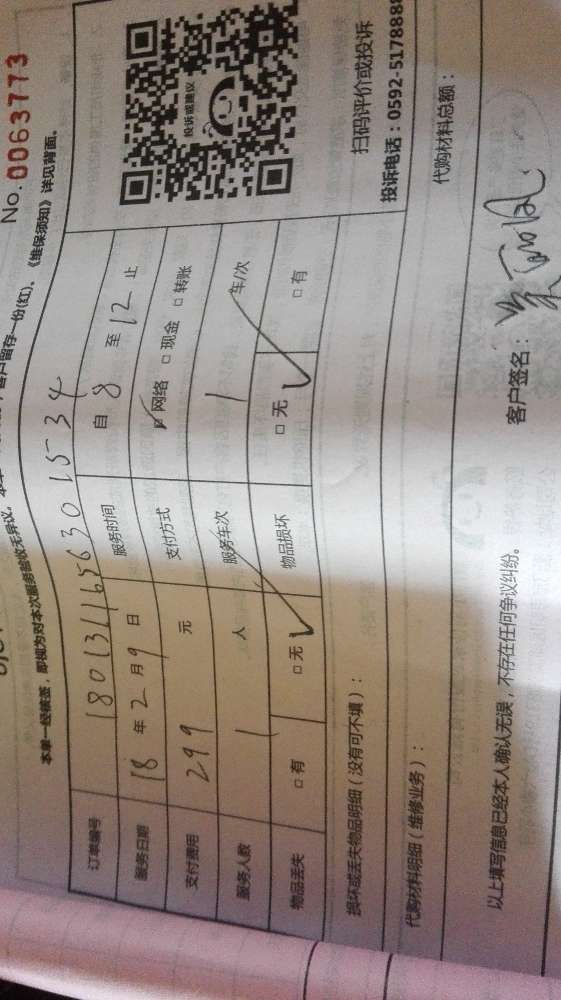 No. 0063773
客户留存一份(红)、《维保须知》详见背面。
本单一经核签，即视为对本次服务验收无异议。
订单编号
服务日期 18 年 2 月 9 日 服务时间 自 8 至 12 止
支付费用 299 元 支付方式 网络 □ 现金 □ 转账
服务人数 1 人 服务车次 1 车/次
物品丢失 □ 有 □ 无 物品损坏 □ 无 □ 有
投诉或建议
扫码评价或投诉
投诉电话：0592-5178888
损坏或丢失物品明细（没有可不填）：
代购材料明细（维修业务）： 代购材料总额：
以上填写信息已经本人确认无误，不存在任何争议纠纷。
客户签名：